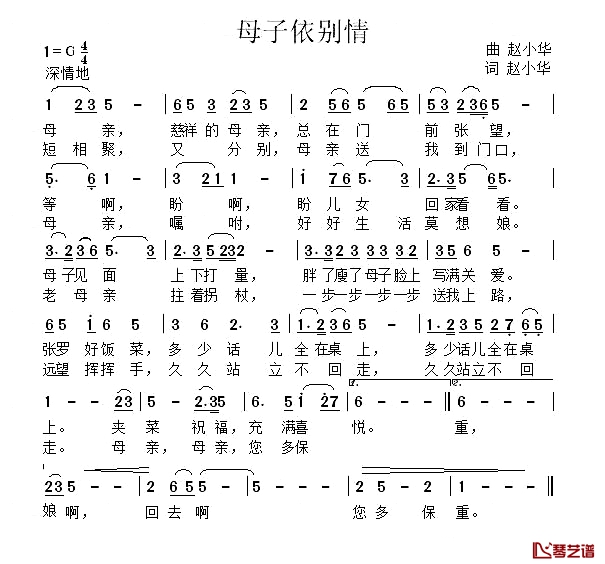 母子依别情
1=G 4/4
曲 赵小华
深情地
词 赵小华
1 2 3 5 - | 6 5 3 2 3 5 - | 2 5 6 5 5 6 5 | 5 3 2 3 6 5 -
母 亲， 慈祥 的 母 亲， 总 在 门 前 张 望，
短 相 聚， 又 分 别， 母 亲 送 我 到 门 口，
5· 6 1 - | 3 2 1 1 - | 1 7 6 5· 3 | 2·3 5 3 5 5·
等 啊， 盼 啊， 盼 儿 女 回 家 看 看。
母 亲， 嘱 咐， 好 好 生 活 莫 想 娘。
3·2 3 6 5· 3 | 2·3 5 2 3 2 - | 3·3 2·3 5·3 2 2 | 3 5 6 5 -
母 子 见 面 上 下 打 量， 胖 了 廋 了 母 子 脸 上 写 满 关 爱。
老 母 亲 拄 着 拐 杖， 一步 一步 一步 一步 送 我 上 路，
6 5 1 6 5 | 3 6 2· 3 | 1·2 3 3 5 2 - | 2·3 5 3 2 7 6 5
张 罗 好 饭 菜， 多 少 话 儿 全 在 桌 上， 多 少 话 儿 全 在 桌
远 望 挥 挥 手， 久 久 站 立 不 回 走， 久 久 站 立 不 回
1 - - 2 3 | 5 - 5 2·3 5 | 5 3 1 2 7 | 6 - - - | 6 - - -
上。 夹 菜 祝 福， 充 满 喜 悦。 重，
走。 母 亲， 母 亲， 您 多 保
2 3 5 - - | 2 6 5 5 - | 5 - - - | 2 2 3 5 | 5 - - -
娘 啊， 回 去 啊 您 多 保 重。
琴艺谱